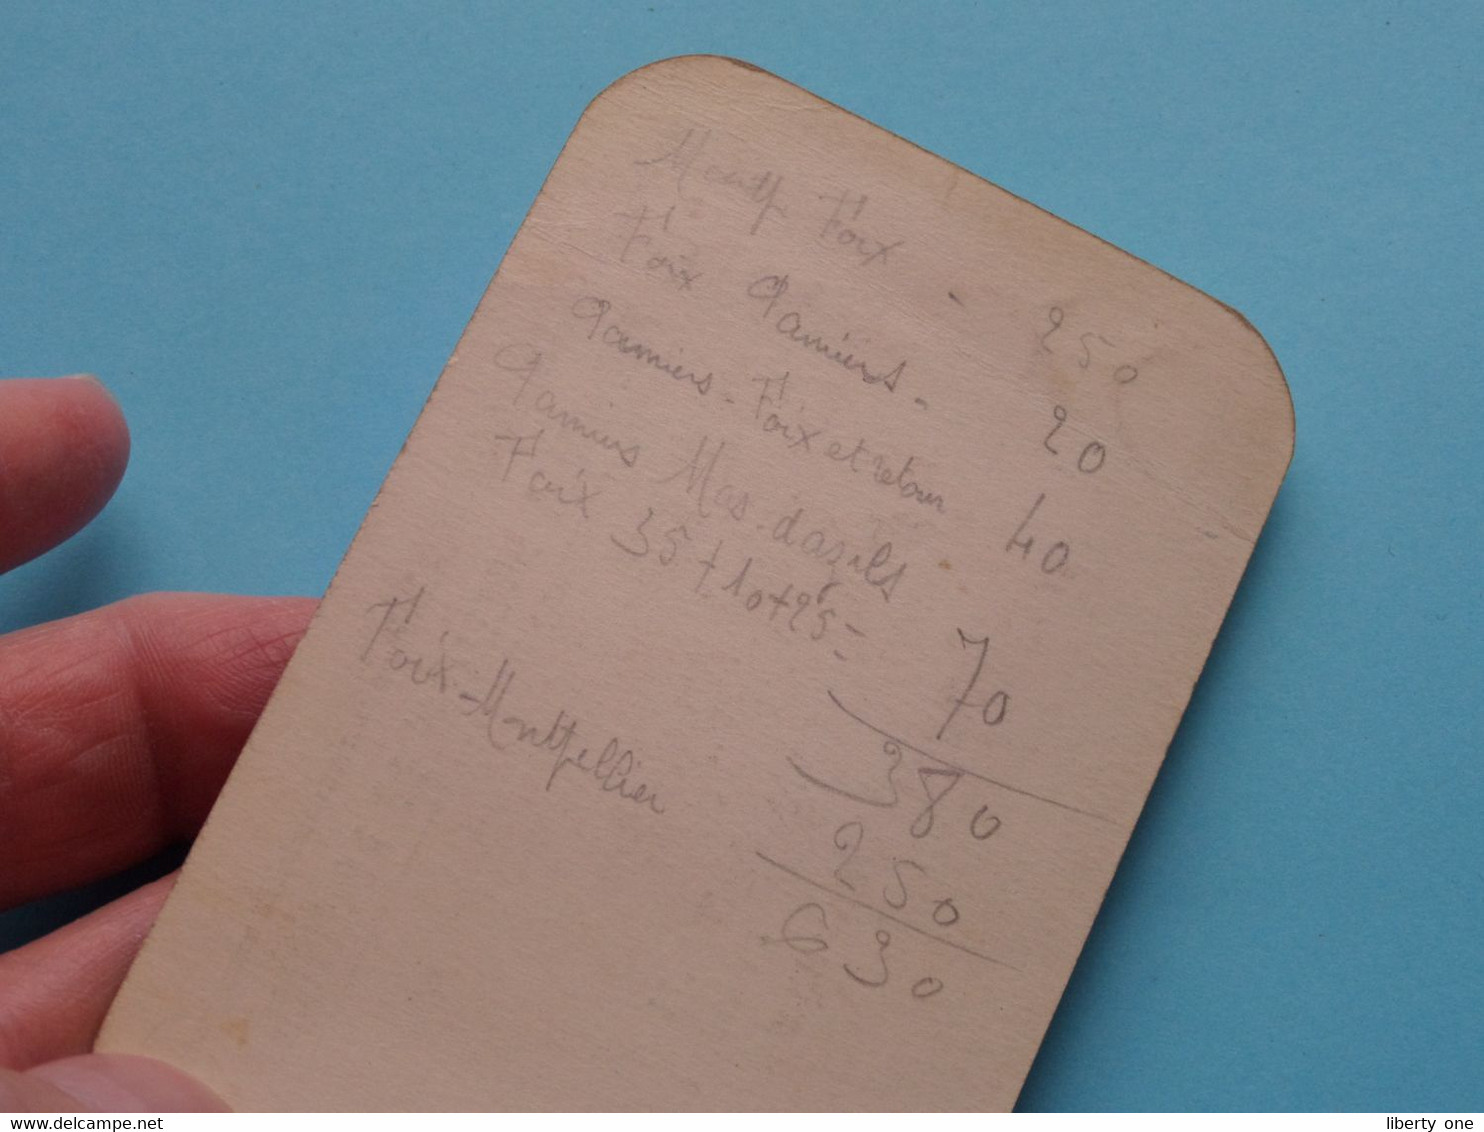 Montp Foix - 250
Foix Pamiers - 20
Pamiers - Foix et retour 40
Pamiers Mas-d'asils
Foix 35 + 10 + 25 = 70
380
Foix - Montpellier 250
630
www.delcampe.net
liberty_one